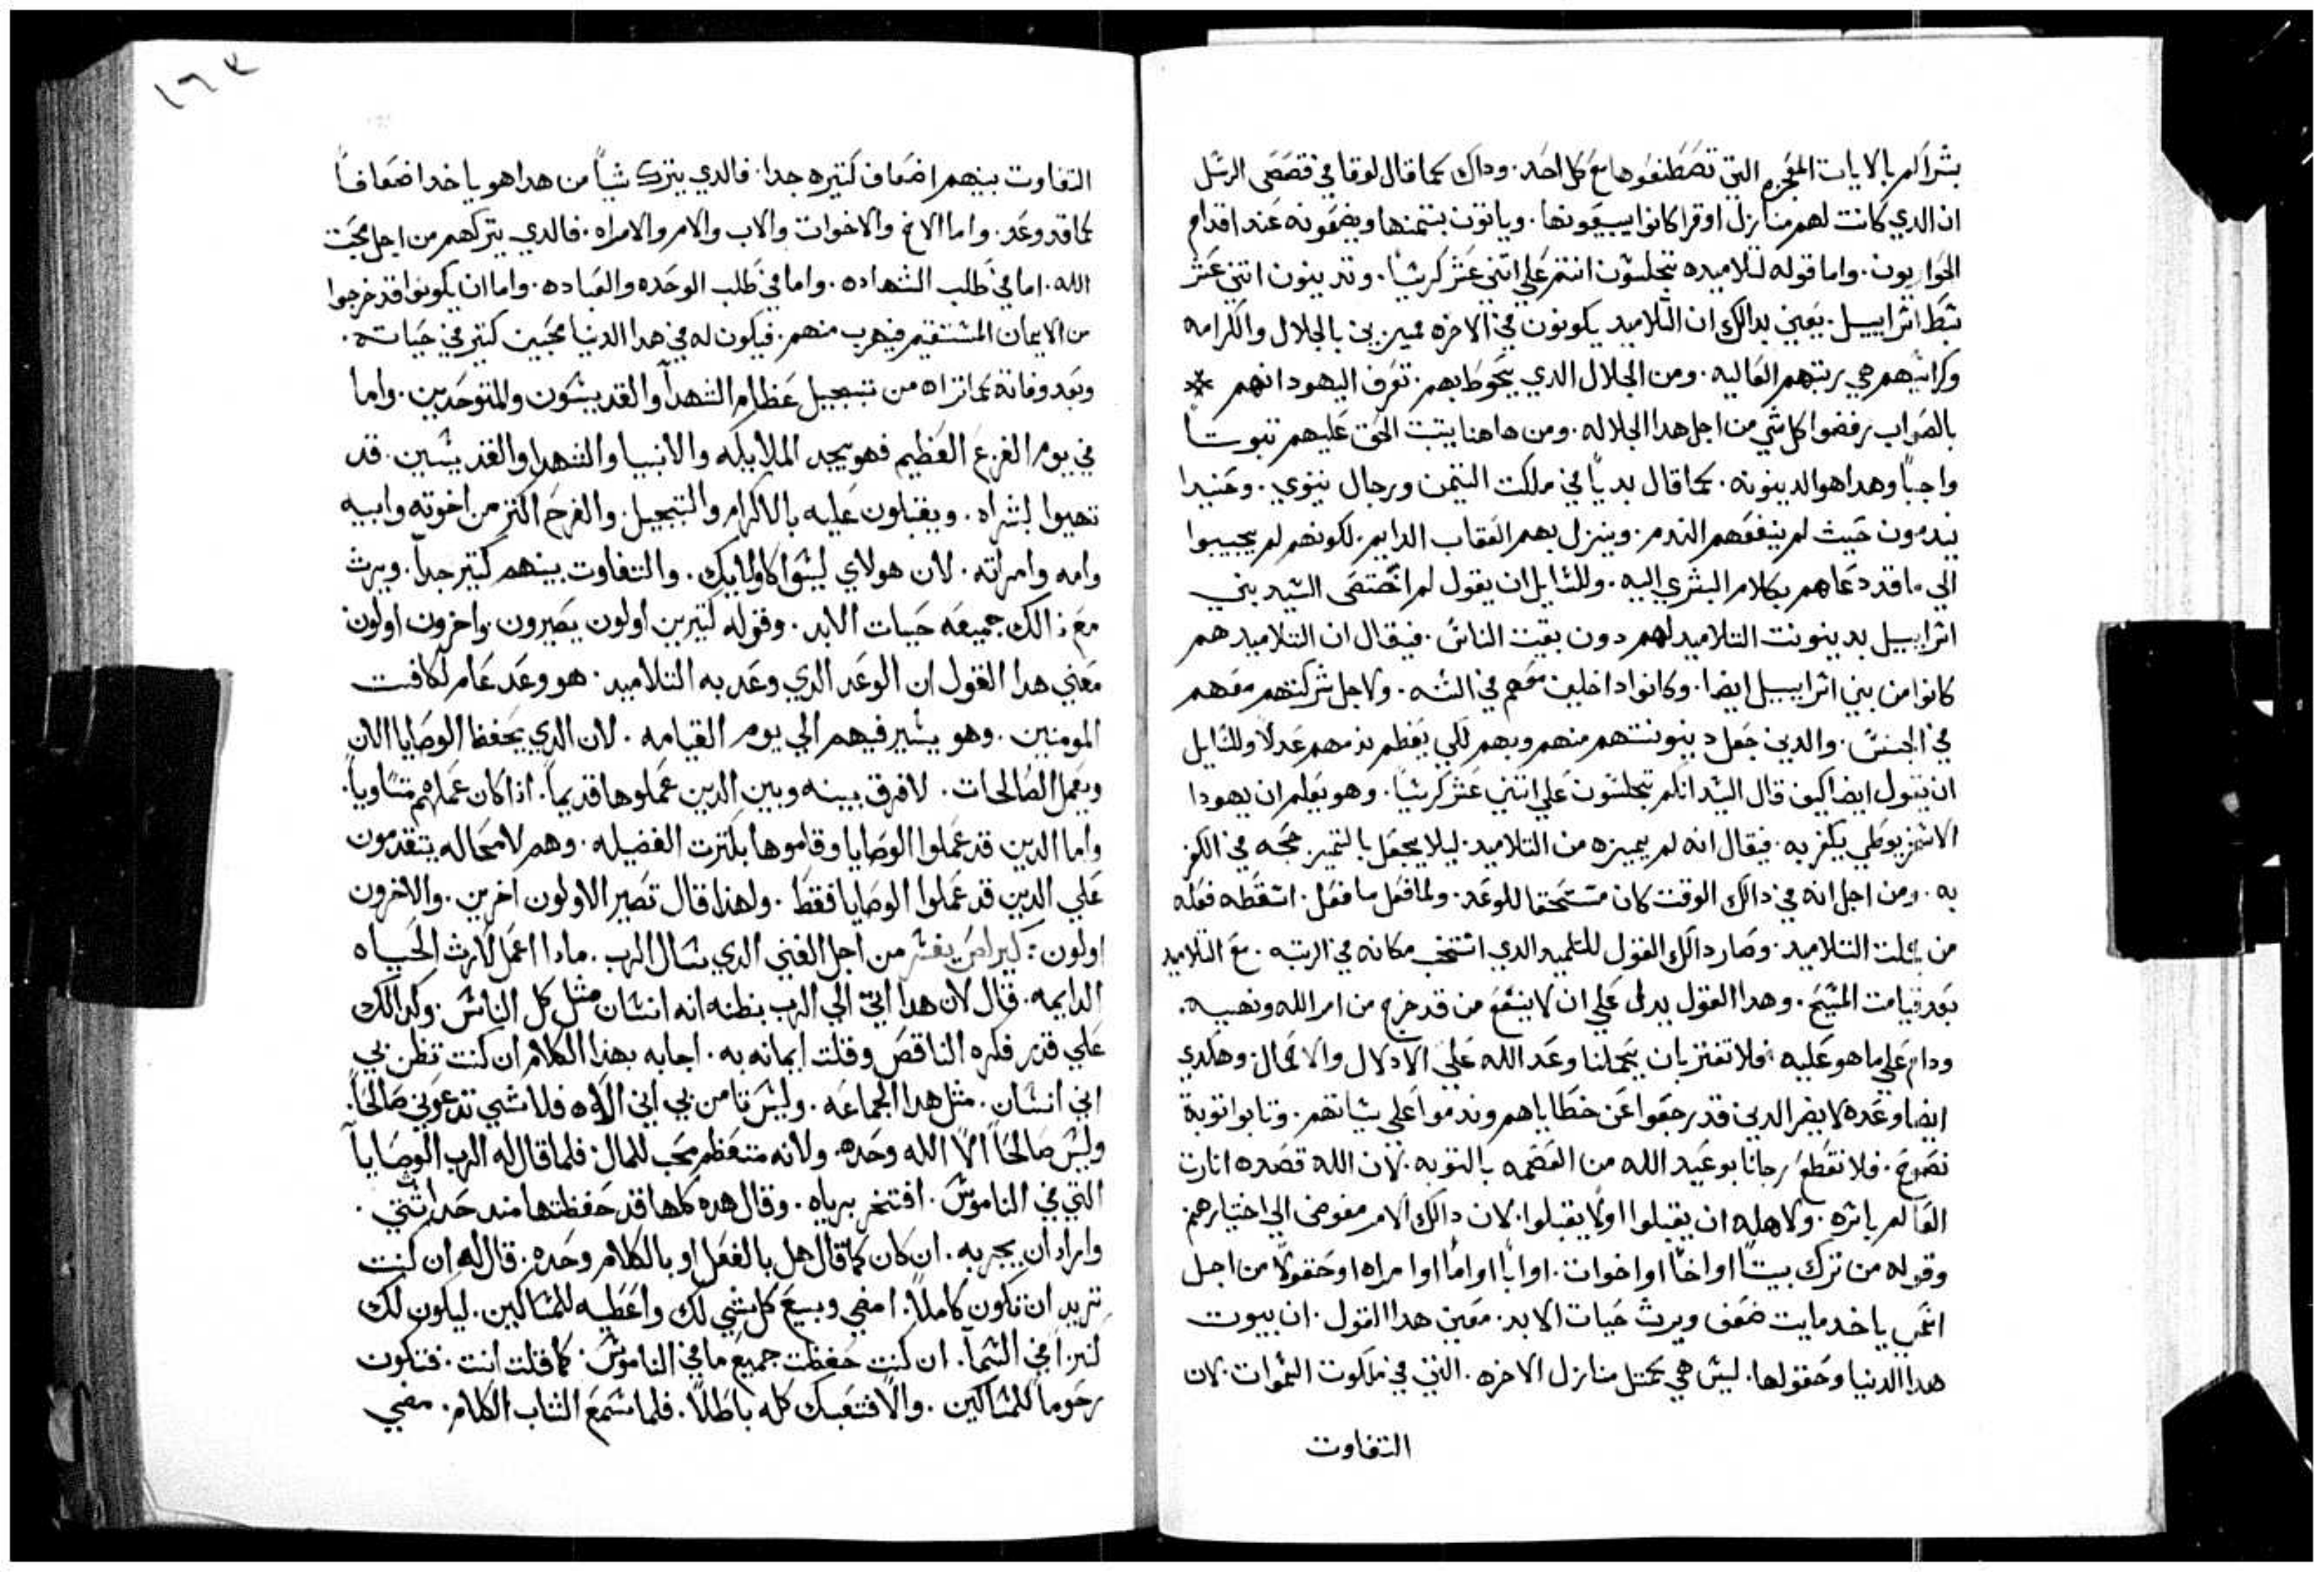 بشراكم بالايات المعجزه التي تصطنعوها مع كل احد. وداك كما قال لوقا في قصص الرسل
ان الدي كانت لهم منازل او قرا كانوا يبيعونها. وياتون بتمنها ويضعونه عند اقدام
الحواريون. واما قوله لتلاميده تجلسون انتم علي اتني عشر كرسيا. وتدينون اتني عشر
سبط اسراييل. يعني بدالك ان التلاميد يكونون في الاخره مميزين بالجلال والكرامه
وكراسيهم هي رتبهم العاليه. ومن الجلال الدي يحوط بهم. تعرف اليهود انهم *
بالصواب رفضوا كل شي من اجل هدا الجلاله. ومن هاهنا يتبت الحق عليهم تبوتا
واجبا وهدا هو الدينونه. كما قال بديا في ملكت التيمن ورجال نينوي. وحنيدا
يندمون حيث لم ينفعهم الندم. وينزل بهم العقاب الدايم. لكونهم لم يجيبوا
الي ما قد دعاهم بكلام البشري اليه. وللسايل ان يقول لم اختص السيد بني
اسراييل بدينونت التلاميد لهم دون بقيت الناس. فيقال ان التلاميد هم
كانوا من بني اسراييل ايضا. وكانوا داخلين معهم في السنه. ولاجل شركتهم معهم
في الجنس. والدين جعل دينونتهم منهم وبهم لكي يعظم ندمهم عدلا وللسايل
ان يقول ايضا كيف قال السيد انكم تجلسون علي اتني عشر كرسيا. وهو يعلم ان يهودا
الاسخريوطي يكفر به. فيقال انه لم يميزه من التلاميد. ليلا يجعل بالتميز حجه في الكفر
به. ومن اجل انه في دالك الوقت كان مستحقا للوعد. ولما فعل ما فعل. اسقطه فعله
من التلاميد. وصار دالك القول للتلميد الدي انتخب مكانه في الرتبه. مع التلاميد
بعد قيامت المسيح. وهدا القول يدل علي ان لا ينتفع من قد خرج من امر الله ونهييه.
ودام علي ما هو عليه. فلا تغتر بان يحملنا وعد الله علي الادلال والاهمال. وهكدي
ايضا وعده لا يضر الدين قد رجعوا عن خطاياهم وندموا علي سياتهم. وتابوا توبة
نصوح. فلا نقطع رجانا بوعيد الله من العصمه بالتوبه. لان الله قصده انارت
العالم باسره. ولاهله ان يقبلوا اولا يقبلوا. لان دالك الامر مفوض الي اختيارهم
وقوله من ترك بيتا او اخا او اخوات. او ابا او اما او امراه او حقولا من اجل
اسمي ياخد مايت ضعف ويرث حيات الابد. معني هدا القول. ان بيوت
هدا الدنيا وحقولها. ليس هي كمتل منازل الاخره. التي في ملكوت السموات. لان
التفاوت
١٦٣
التفاوت بينهم اضعاف كتيره جدا. فالدي يترك شيا من هدا هو ياخد اضعافا
كما قد وعد. واما الاخ والاخوات والاب والام والامراه. فالدي يتركهم من اجل محبت
الله. اما في طلب الشهاده. واما في طلب الوحده والعباده. واما ان يكونوا قد خرجوا
من الايمان المستقيم فيهرب منهم. فيكون له في هدا الدنيا محبين كتير في حياته.
وبعد وفاته كما تراه من تبجيل عظام الشهدا والقديسون والمتوحدين. واما
في يوم الفزع العظيم فهو يجد الملايكه والانبيا والشهدا والقديسين. قد
تهيوا لبشراه. ويقبلون عليه بالاكرام والتبجيل. والفرح اكتر من اخوته وابيه
وامه وامراته. لان هولاي ليسوا كاولايك. والتفاوت بينهم كتير جدا. ويرث
مع ذالك جميعه حيات الابد. وقوله كتيرين اولون يصيرون. واخرون اولون
معني هدا القول ان الوعد الدي وعد به التلاميد. هو وعد عام لكافت
المومنين. وهو يشير فيهم الي يوم القيامه. لان الدي يحفظ الوصايا الان
ويعمل الصالحات. لا فرق بينه وبين الدين عملوها قديما. اذا كان عملهم متساويا.
واما الدين قد عملوا الوصايا وقاموها بكترت الفضيله. وهم لا محاله يتقدمون
علي الدين قد عملوا الوصايا فقط. ولهذا قال تصير الاولون اخرين. والاخرون
اولون: كيرلص يفسر من اجل الغني الدي سال الرب. مادا اعمل لارث الحياه
الدايمه. قال لان هدا اتي الي الرب بظنه انه انسان مثل كل الناس. وكدالك
علي قدر فكره الناقص وقلت ايمانه به. اجابه بهذا الكلام ان كنت تظن بي
اني انسان. مثل هدا الجماعه. وليس تامن بي اني الاه فلما شي تدعوني صالحا.
وليس صالحا الا الله وحده. ولانه متعظم محب للمال. فلما قال له الرب الوصايا
التي في الناموس. افتخر برياه. وقال هده كلها قد حفظتها مند حداثتي.
واراد ان يجربه. ان كان كما قال هل بالفعل او بالكلام وحده. قال له ان كنت
تريد ان تكون كاملا. امضي وبيع كل شي لك واعطيه للمساكين. ليكون لك
كنزا في السما. ان كنت حفظت جميع ما في الناموس. كما قلت انت. فتكون
رحوما للمساكين. والا فتعبك كله باطلا. فلما سمع الشاب الكلام. مضي